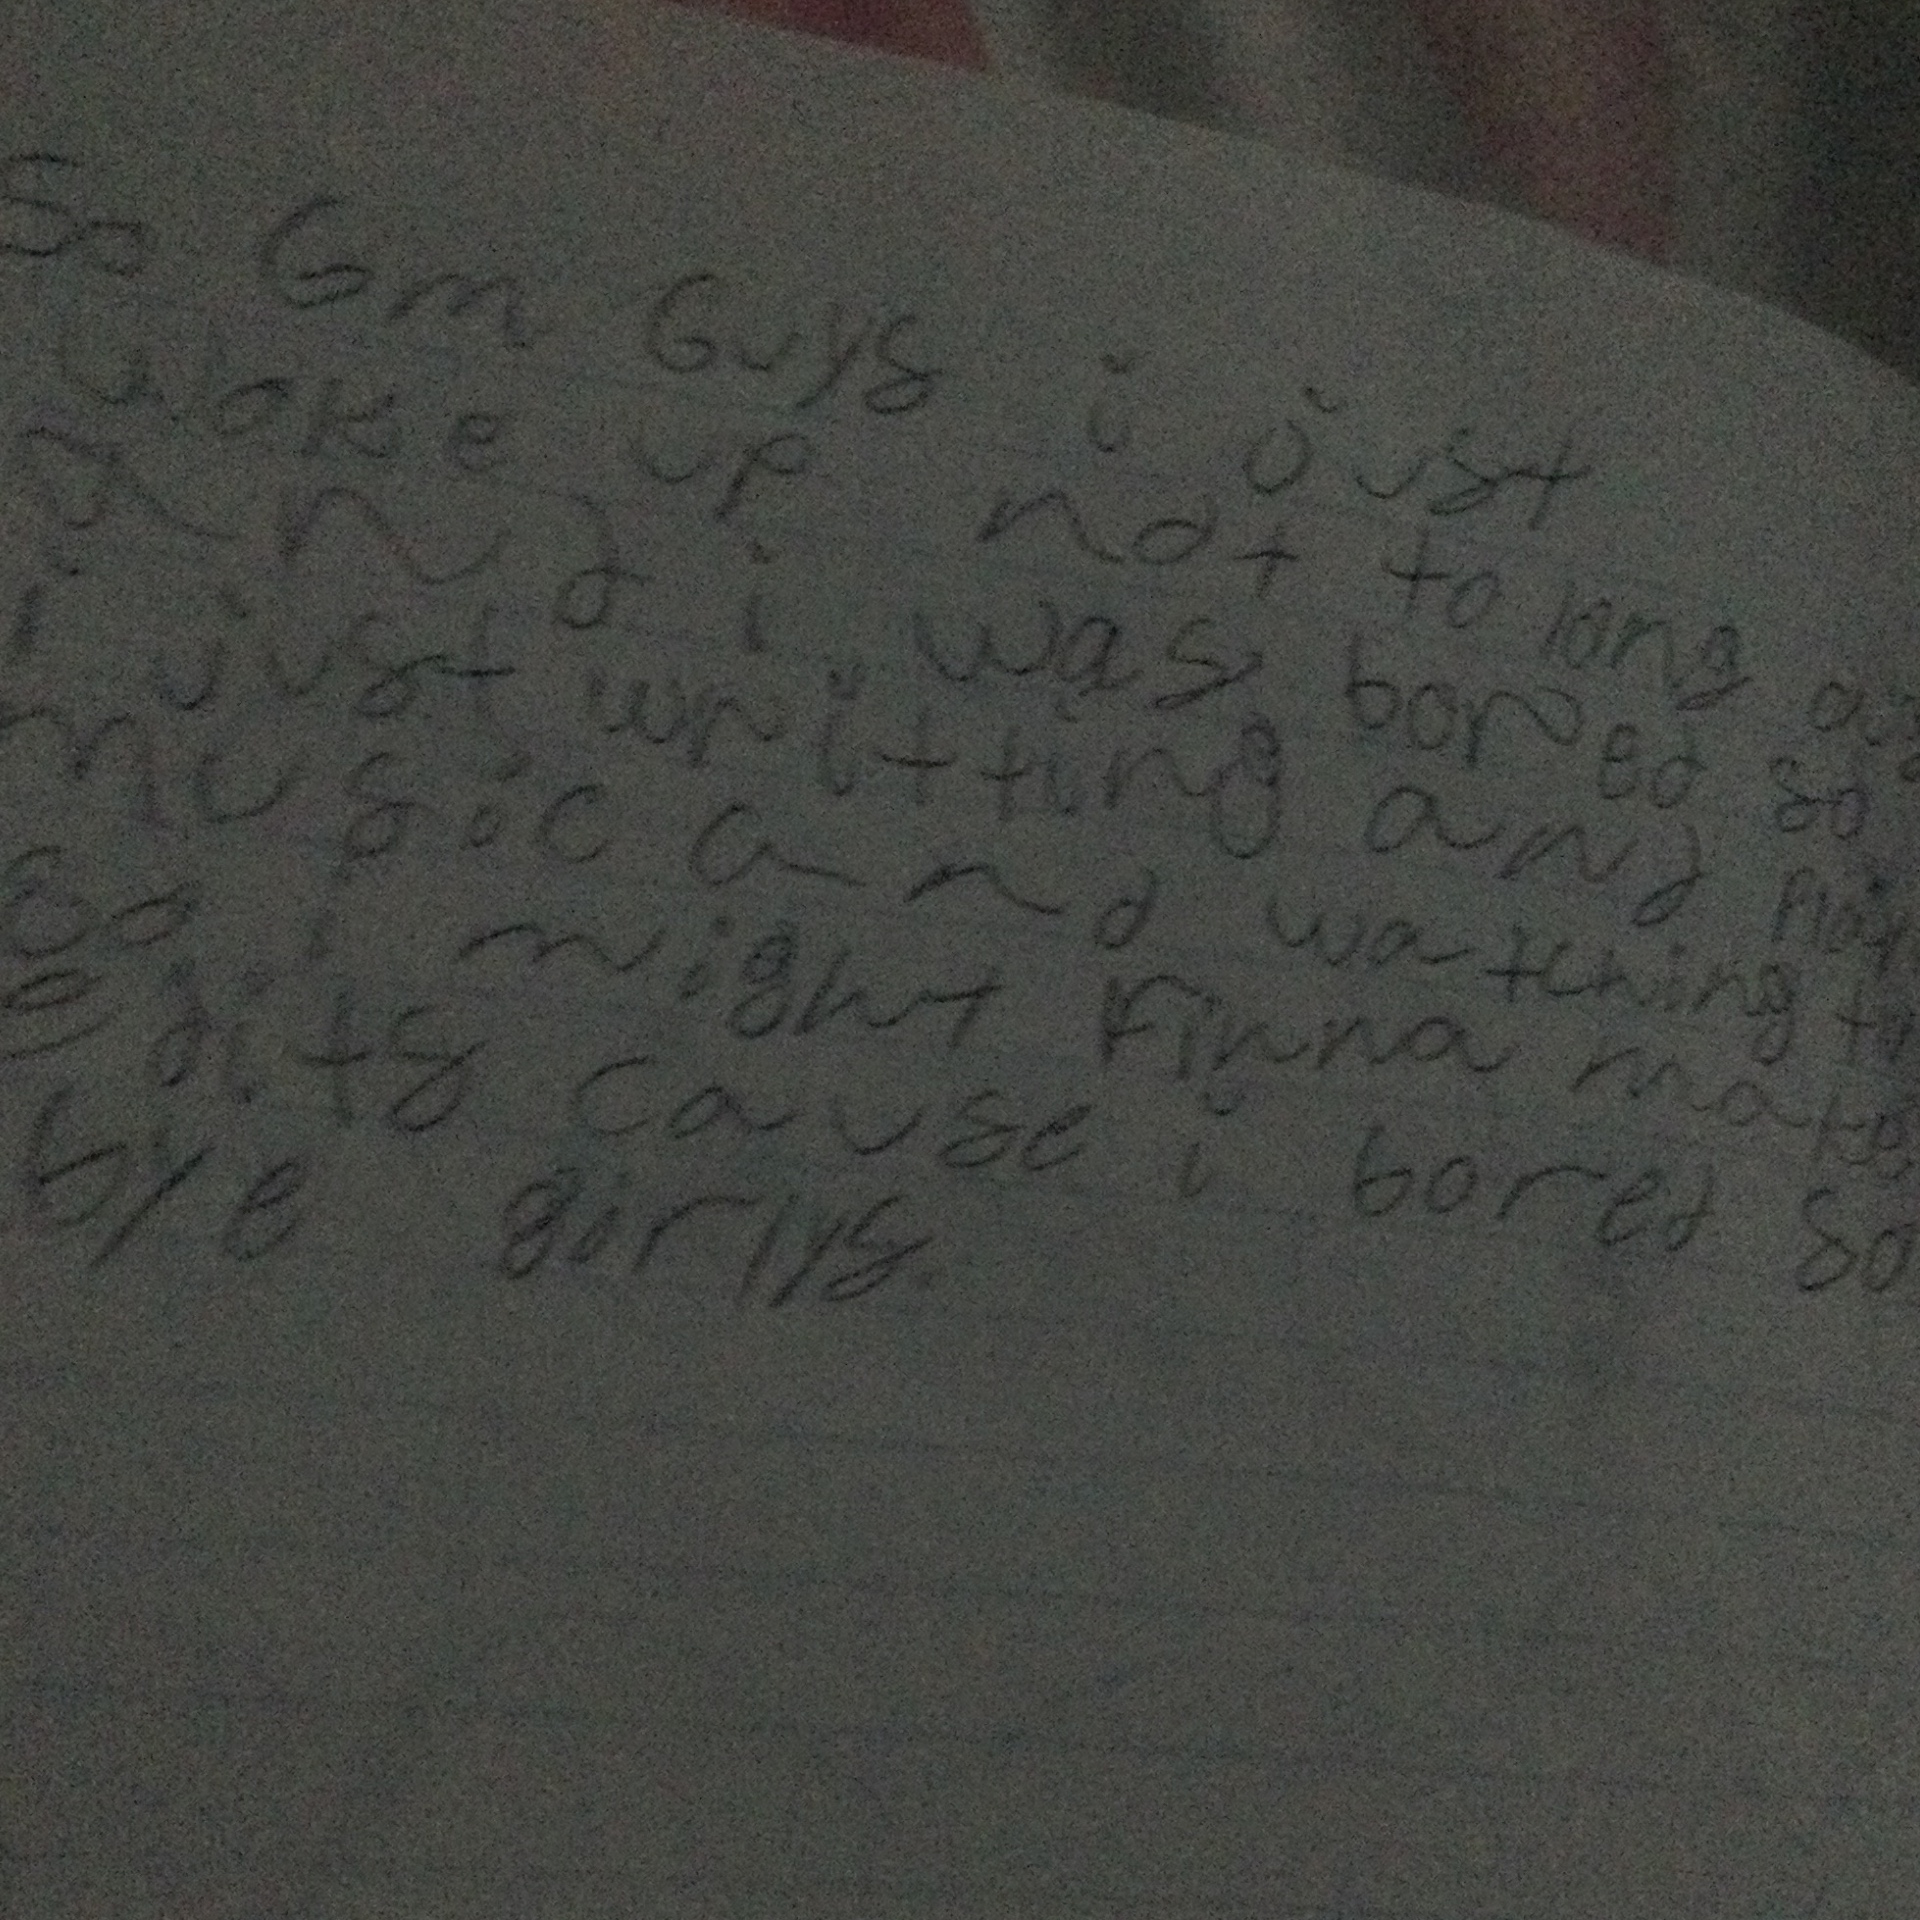 So Gm Guys i just
woke up not to long ago
And i was bored so
i just writting and play
music and watching
So i might finna make
Edits cause i bored so
bye girlys